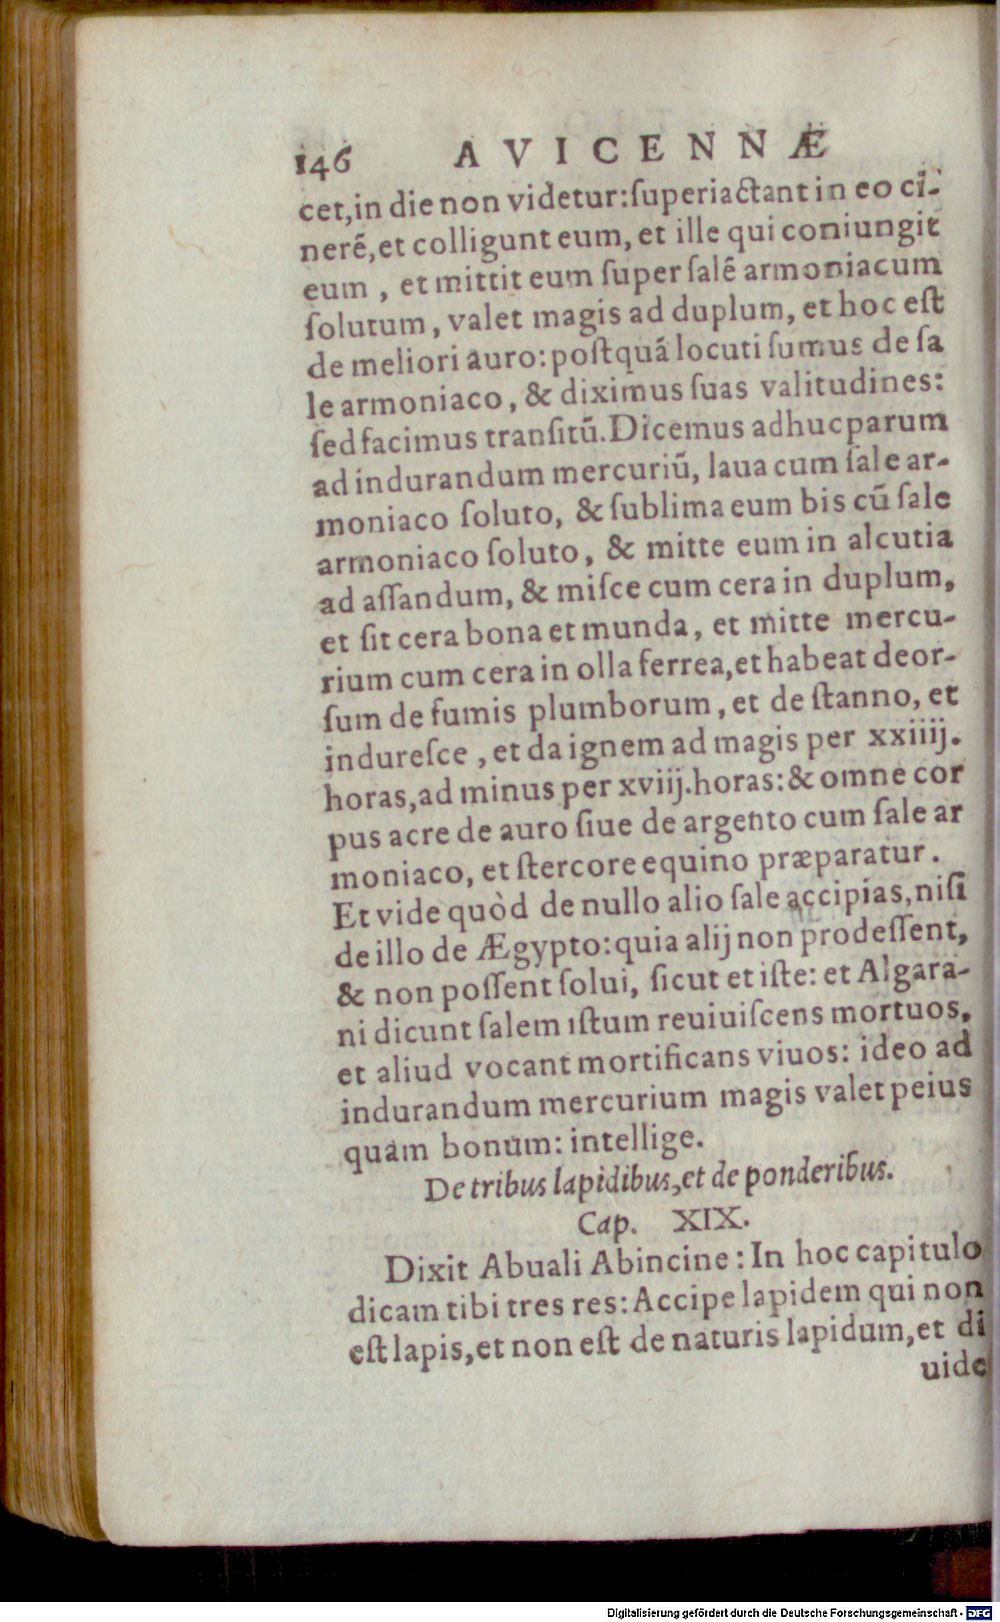 146 AVICENNÆ
cet,in die non videtur:ſuperiactant in eo ci-
nerē,et colligunt eum, et ille qui coniungit
eum , et mittit eum ſuper ſalē armoniacum
ſolutum, valet magis ad duplum, et hoc eſt
de meliori auro: poſtquā locuti ſumus de ſa
le armoniaco, & diximus ſuas valitudines:
ſed facimus tranſitū. Dicemus adhuc parum
ad indurandum mercuriū, laua cum ſale ar-
moniaco ſoluto, & ſublima eum bis cū ſale
armoniaco ſoluto, & mitte eum in alcutia
ad aſſandum, & miſce cum cera in duplum,
et ſit cera bona et munda, et mitte mercu-
rium cum cera in olla ferrea,et habeat deor-
ſum de fumis plumborum, et de ſtanno, et
indureſce , et da ignem ad magis per xxiiij.
horas,ad minus per xviij.horas: & omne cor
pus acre de auro ſiue de argento cum ſale ar
moniaco, et ſtercore equino præparatur.
Et vide quòd de nullo alio ſale accipias,niſi
de illo de Ægypto:quia alij non prodeſſent,
& non poſſent ſolui, ſicut et iſte: et Algara-
ni dicunt ſalem iſtum reuiuiſcens mortuos,
et aliud vocant mortificans viuos: ideo ad
indurandum mercurium magis valet peius
quàm bonum: intellige.
De tribus lapidibus,et de ponderibus.
Cap. XIX.
Dixit Abuali Abincine: In hoc capitulo
dicam tibi tres res: Accipe lapidem qui non
eſt lapis,et non eſt de naturis lapidum,et di
uide
Digitalisierung gefördert durch die Deutsche Forschungsgemeinschaft - DFG